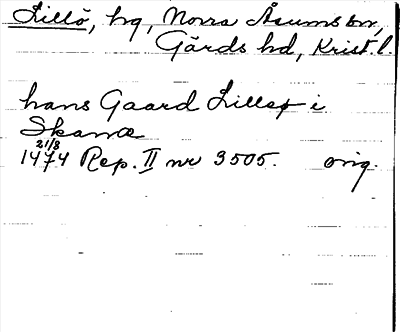 Lillö, hg, Norra Åsums sn,
Gärds hd, Krist. l.
hans Gaard Lilleø i
Skanæ
21/8
1474 Rep. II nr 3505. orig.